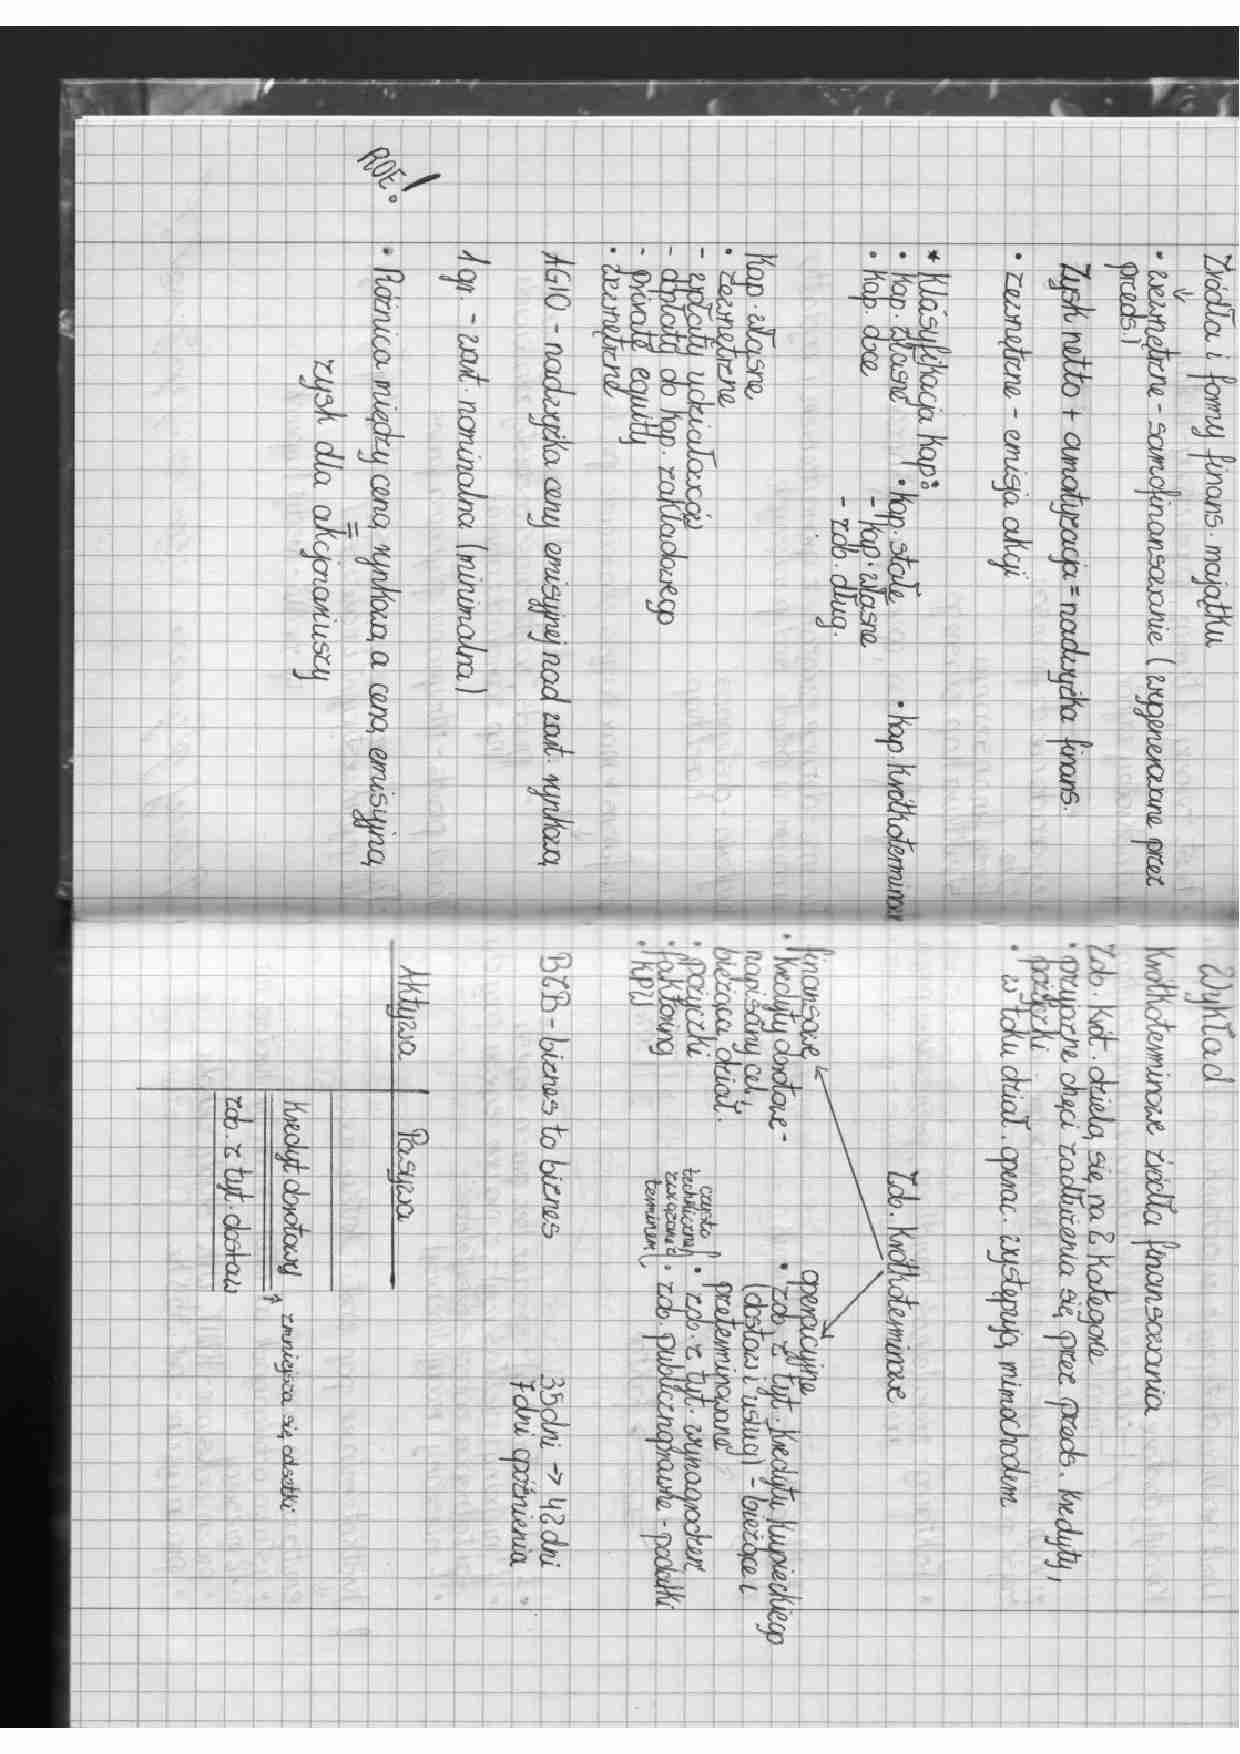 Źródła i formy finans. majątku
• wewnętrzne - samofinansowanie (wygenerowane przez
przeds.)
Zysk netto + amortyzacja = nadwyżka finans.
• zewnętrzne - emisja akcji
* Klasyfikacja kap:
• kap. własne • kap. stałe • kap krótkoterminow
• kap. obce - kap. własne
- zob. dług.
Kap. własne
• zewnętrzne
- wpłaty udziałowców
- dopłaty do kap. zakładowego
- private equity
• wewnętrzne
AGIO - nadwyżka ceny emisyjnej nad wart. rynkową
1 gr. - wart. nominalna (minimalna)
ROE!
• Różnica między ceną rynkową a ceną emisyjną
=
zysk dla akcjonariuszy
Wykład
Krótkoterminowe źródła finansowania
Zob. krót. dzielą się na 2 kategorie
• przyjazne chęci zadłużenia się przez przeds. kredyty,
pożyczki
• w toku dział. operac. występują mimochodem
Zob. krótkoterminowe
finansowe
• kredyty obrotowe -
napisany cel;
bieżąca dział.
• pożyczki
• faktoring
• KPD
operacyjne
• zob. z tyt. kredytu kupieckiego
(dostaw i usług) - bieżące i
przeterminowane
• zob. z tyt. wynagrodzeń
• zob. publicznoprawne - podatki
czysto
techniczne
związane z
terminem
B2B - biznes to biznes
35 dni → 42 dni
7 dni opóźnienia
Aktywa | Pasywa
Kredyt obrotowy
↑ zmniejsza się odsetki
zob. z tyt. dostaw